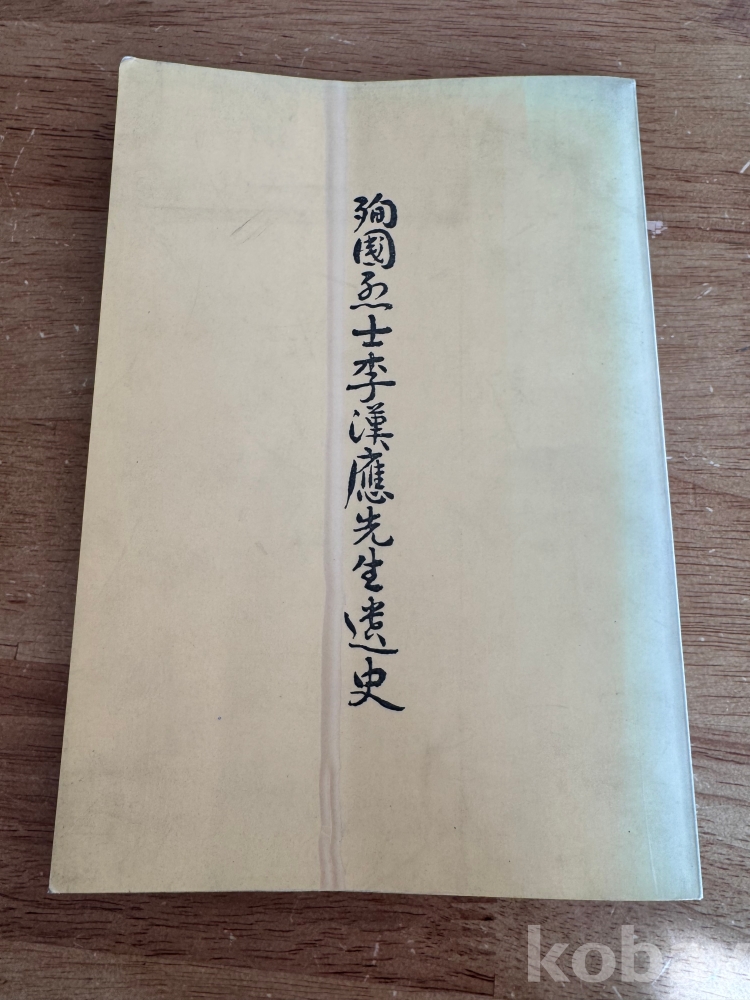 殉國烈士李漢應先生遺史
kobay